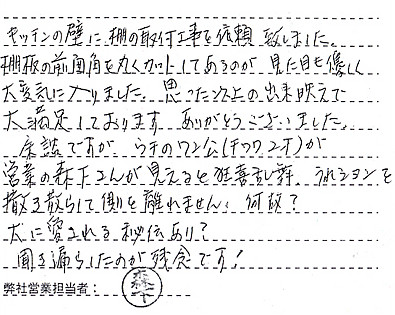 キッチンの壁に棚の取付工事を依頼致しました。
棚板の前面角を丸くカットしてあるのが見た目も優しく
大変気に入りました。思った以上の出来映えで
大満足しております。ありがとうございました。
余談ですが、うちのワン公(チワワ2才)が
営業の森下さんが見えると狂喜乱舞。うれションを
撒き散らして側を離れません。何故?
犬に愛される秘伝あり?
聞き漏らしたのが残念です!
弊社営業担当者: 森下